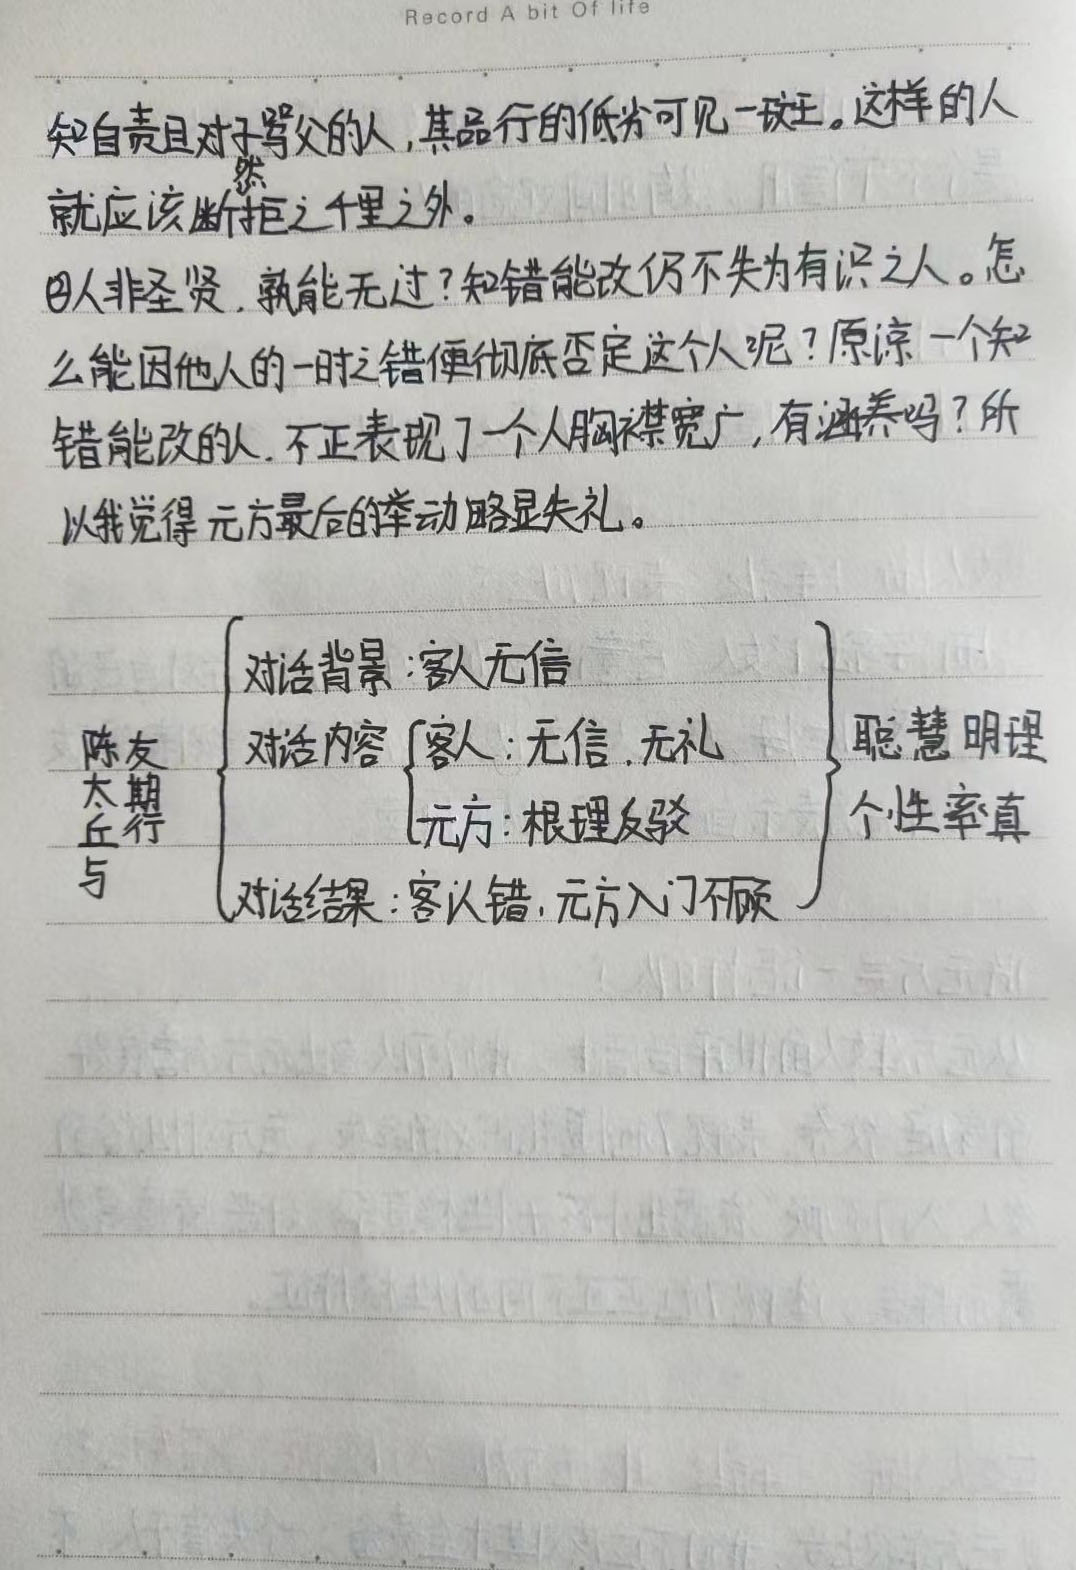 Record A bit Of life
知自责且对子骂父的人,其品行的低劣可见一斑。这样的人
就应该断然拒之千里之外。
②人非圣贤,孰能无过?知错能改仍不失为有识之人。怎
么能因他人的一时之错便彻底否定这个人呢?原谅一个知
错能改的人,不正表现了一个人胸襟宽广,有涵养吗?所
以我觉得元方最后的举动略显失礼。
陈太丘与友期行
对话背景:客人无信
对话内容
客人:无信,无礼
元方:根理反驳
对话结果:客认错,元方入门不顾
聪慧明理
个性率真